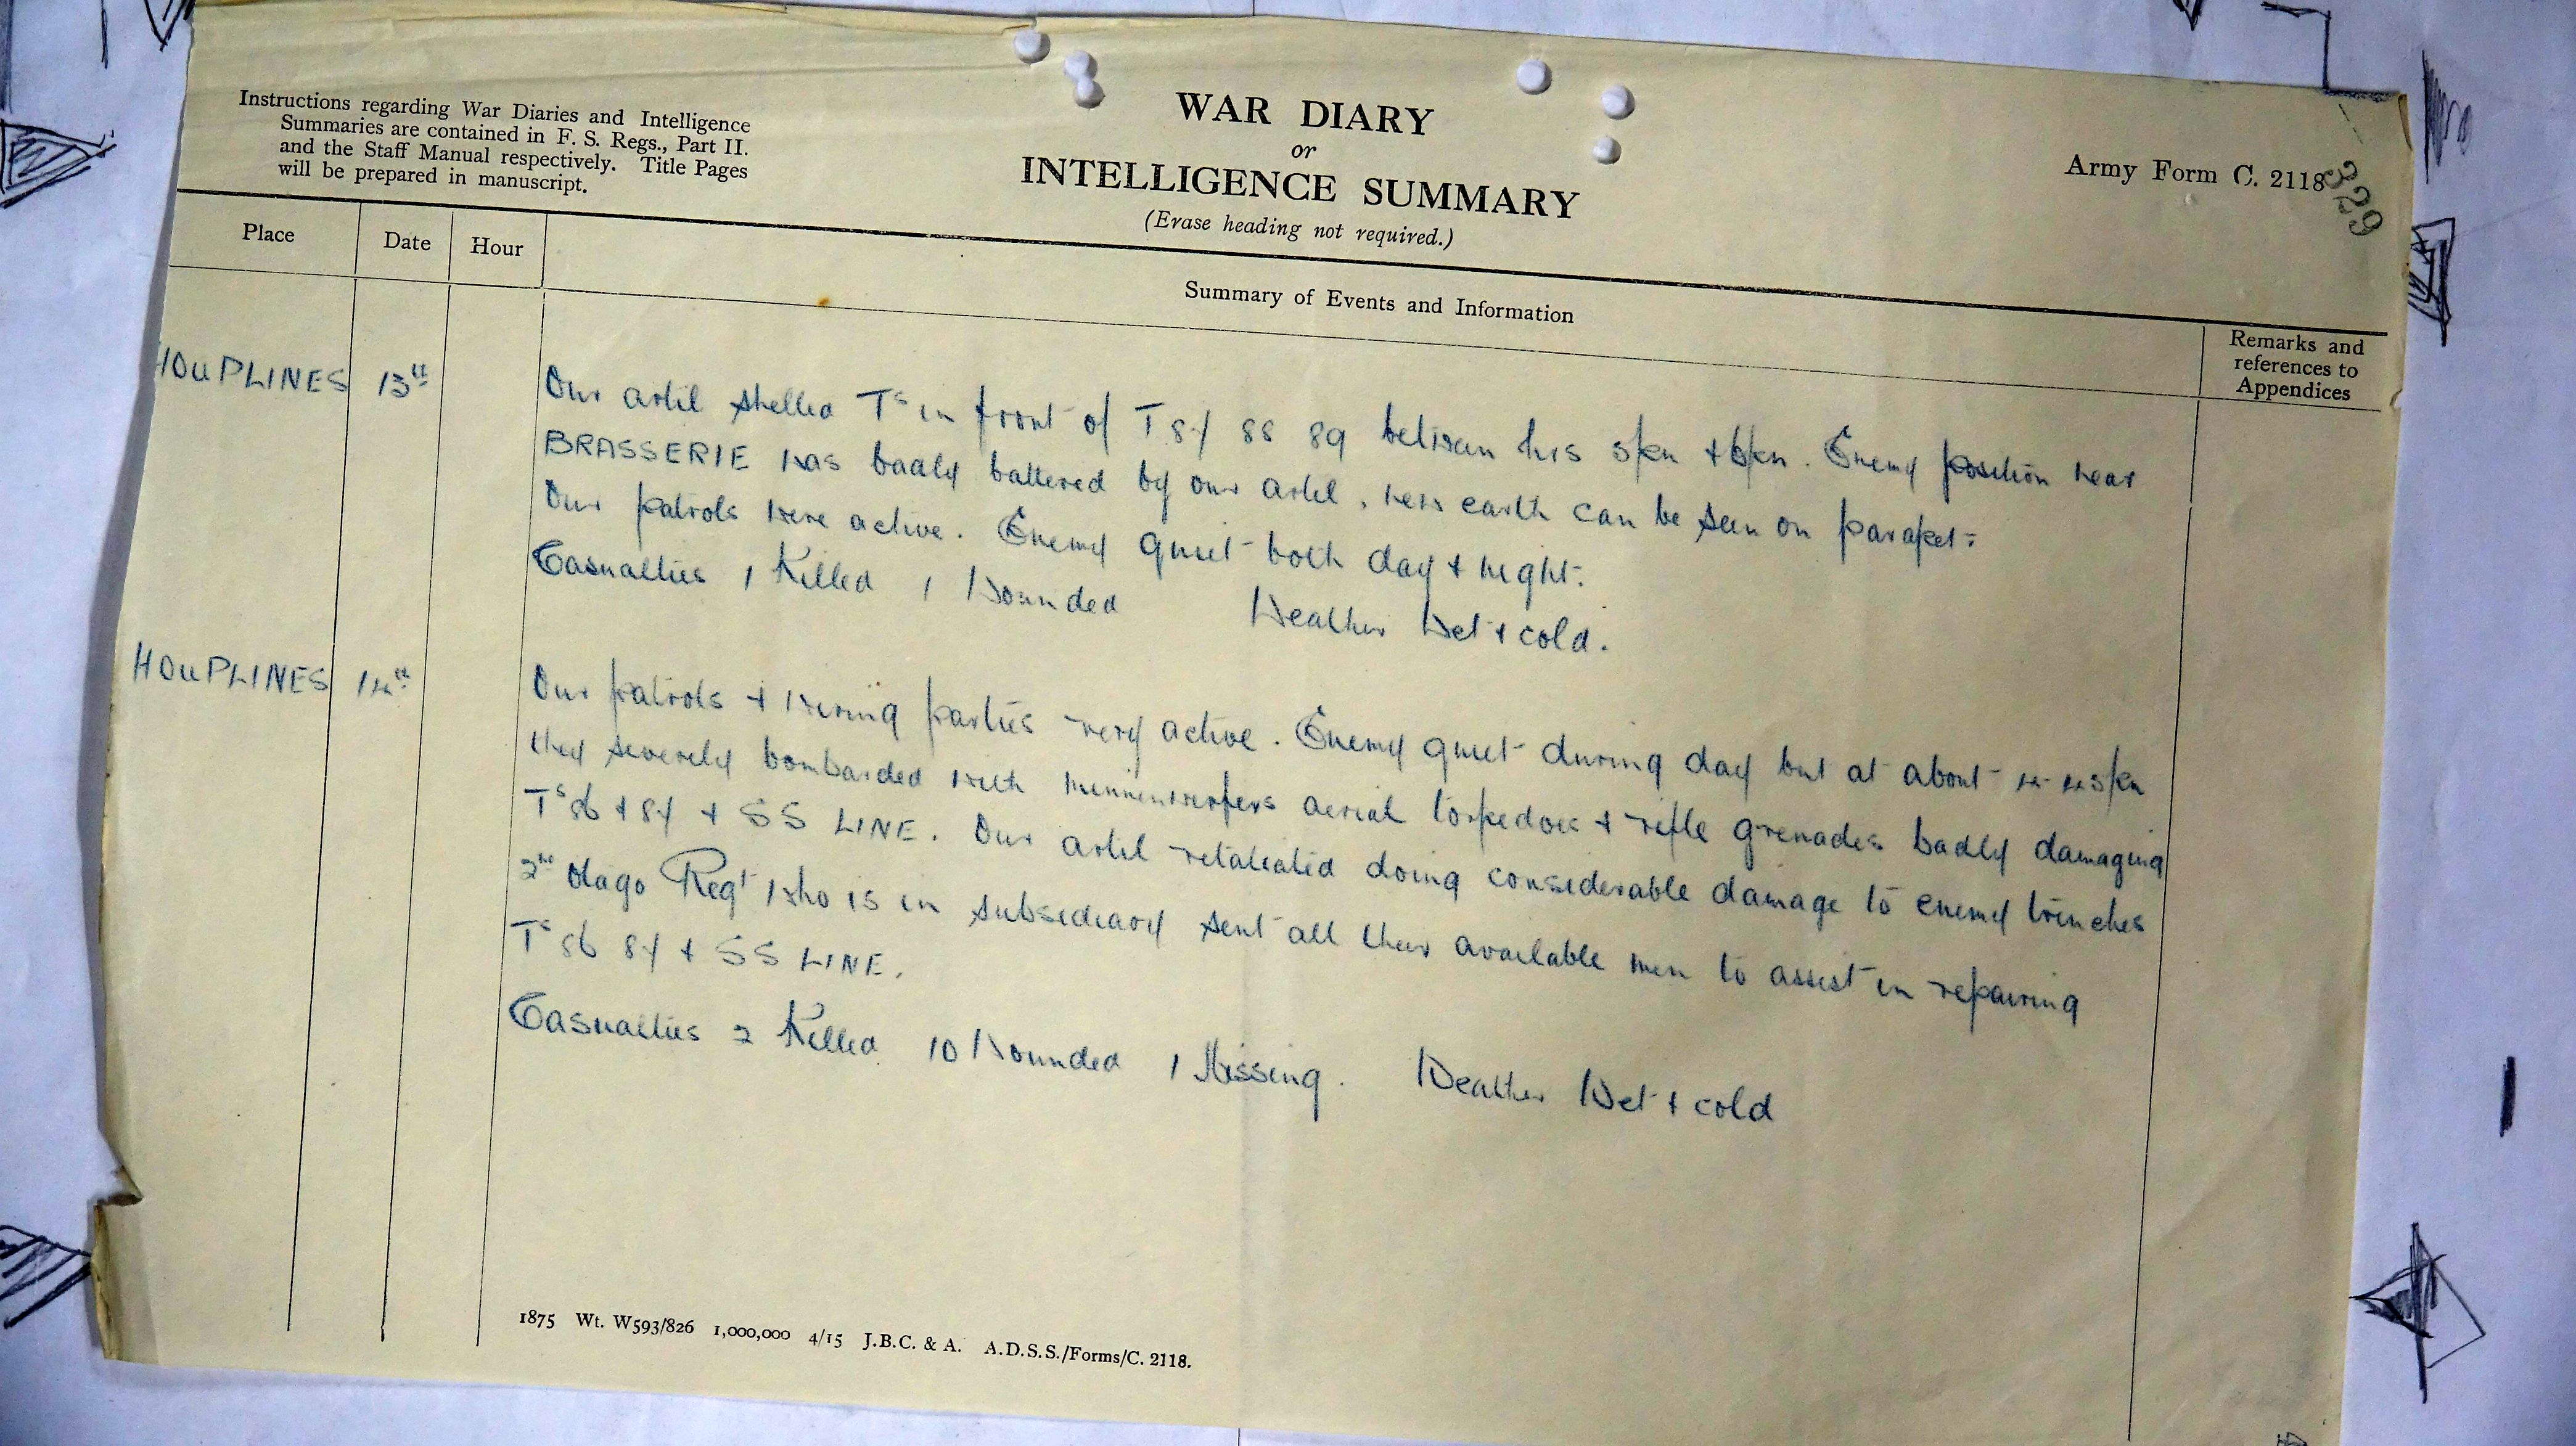 Instructions regarding War Diaries and Intelligence
Summaries are contained in F. S. Regs., Part II.
and the Staff Manual respectively. Title Pages
will be prepared in manuscript.
WAR DIARY
or
INTELLIGENCE SUMMARY
(Erase heading not required.)
Army Form C. 2118
329
Place Date Hour Summary of Events and Information Remarks and
references to
Appendices
HOUPLINES 13th Our artil shelled Ts in front of T 87 88 89 between hrs 5pm + 6pm. Enemy position near
BRASSERIE was badly battered by our artil, new earth can be seen on parapet.
Our patrols were active. Enemy quiet both day + night.
Casualties 1 Killed 1 Wounded Weather Wet + cold.
HOUPLINES 14th Our patrols + wiring parties very active. Enemy quiet during day but at about 4-45pm
they severely bombarded with minnenwerfers aerial torpedoes + rifle grenades badly damaging
Ts 86 + 87 + SS LINE. Our artil retaliated doing considerable damage to enemy trenches
2nd Otago Regt who is in subsidiary sent all their available men to assist in repairing
Ts 86 87 + SS LINE.
Casualties 2 Killed 10 Wounded 1 Missing. Weather Wet + cold
1875 Wt. W593/826 1,000,000 4/15 J.B.C. & A. A.D.S.S./Forms/C. 2118.